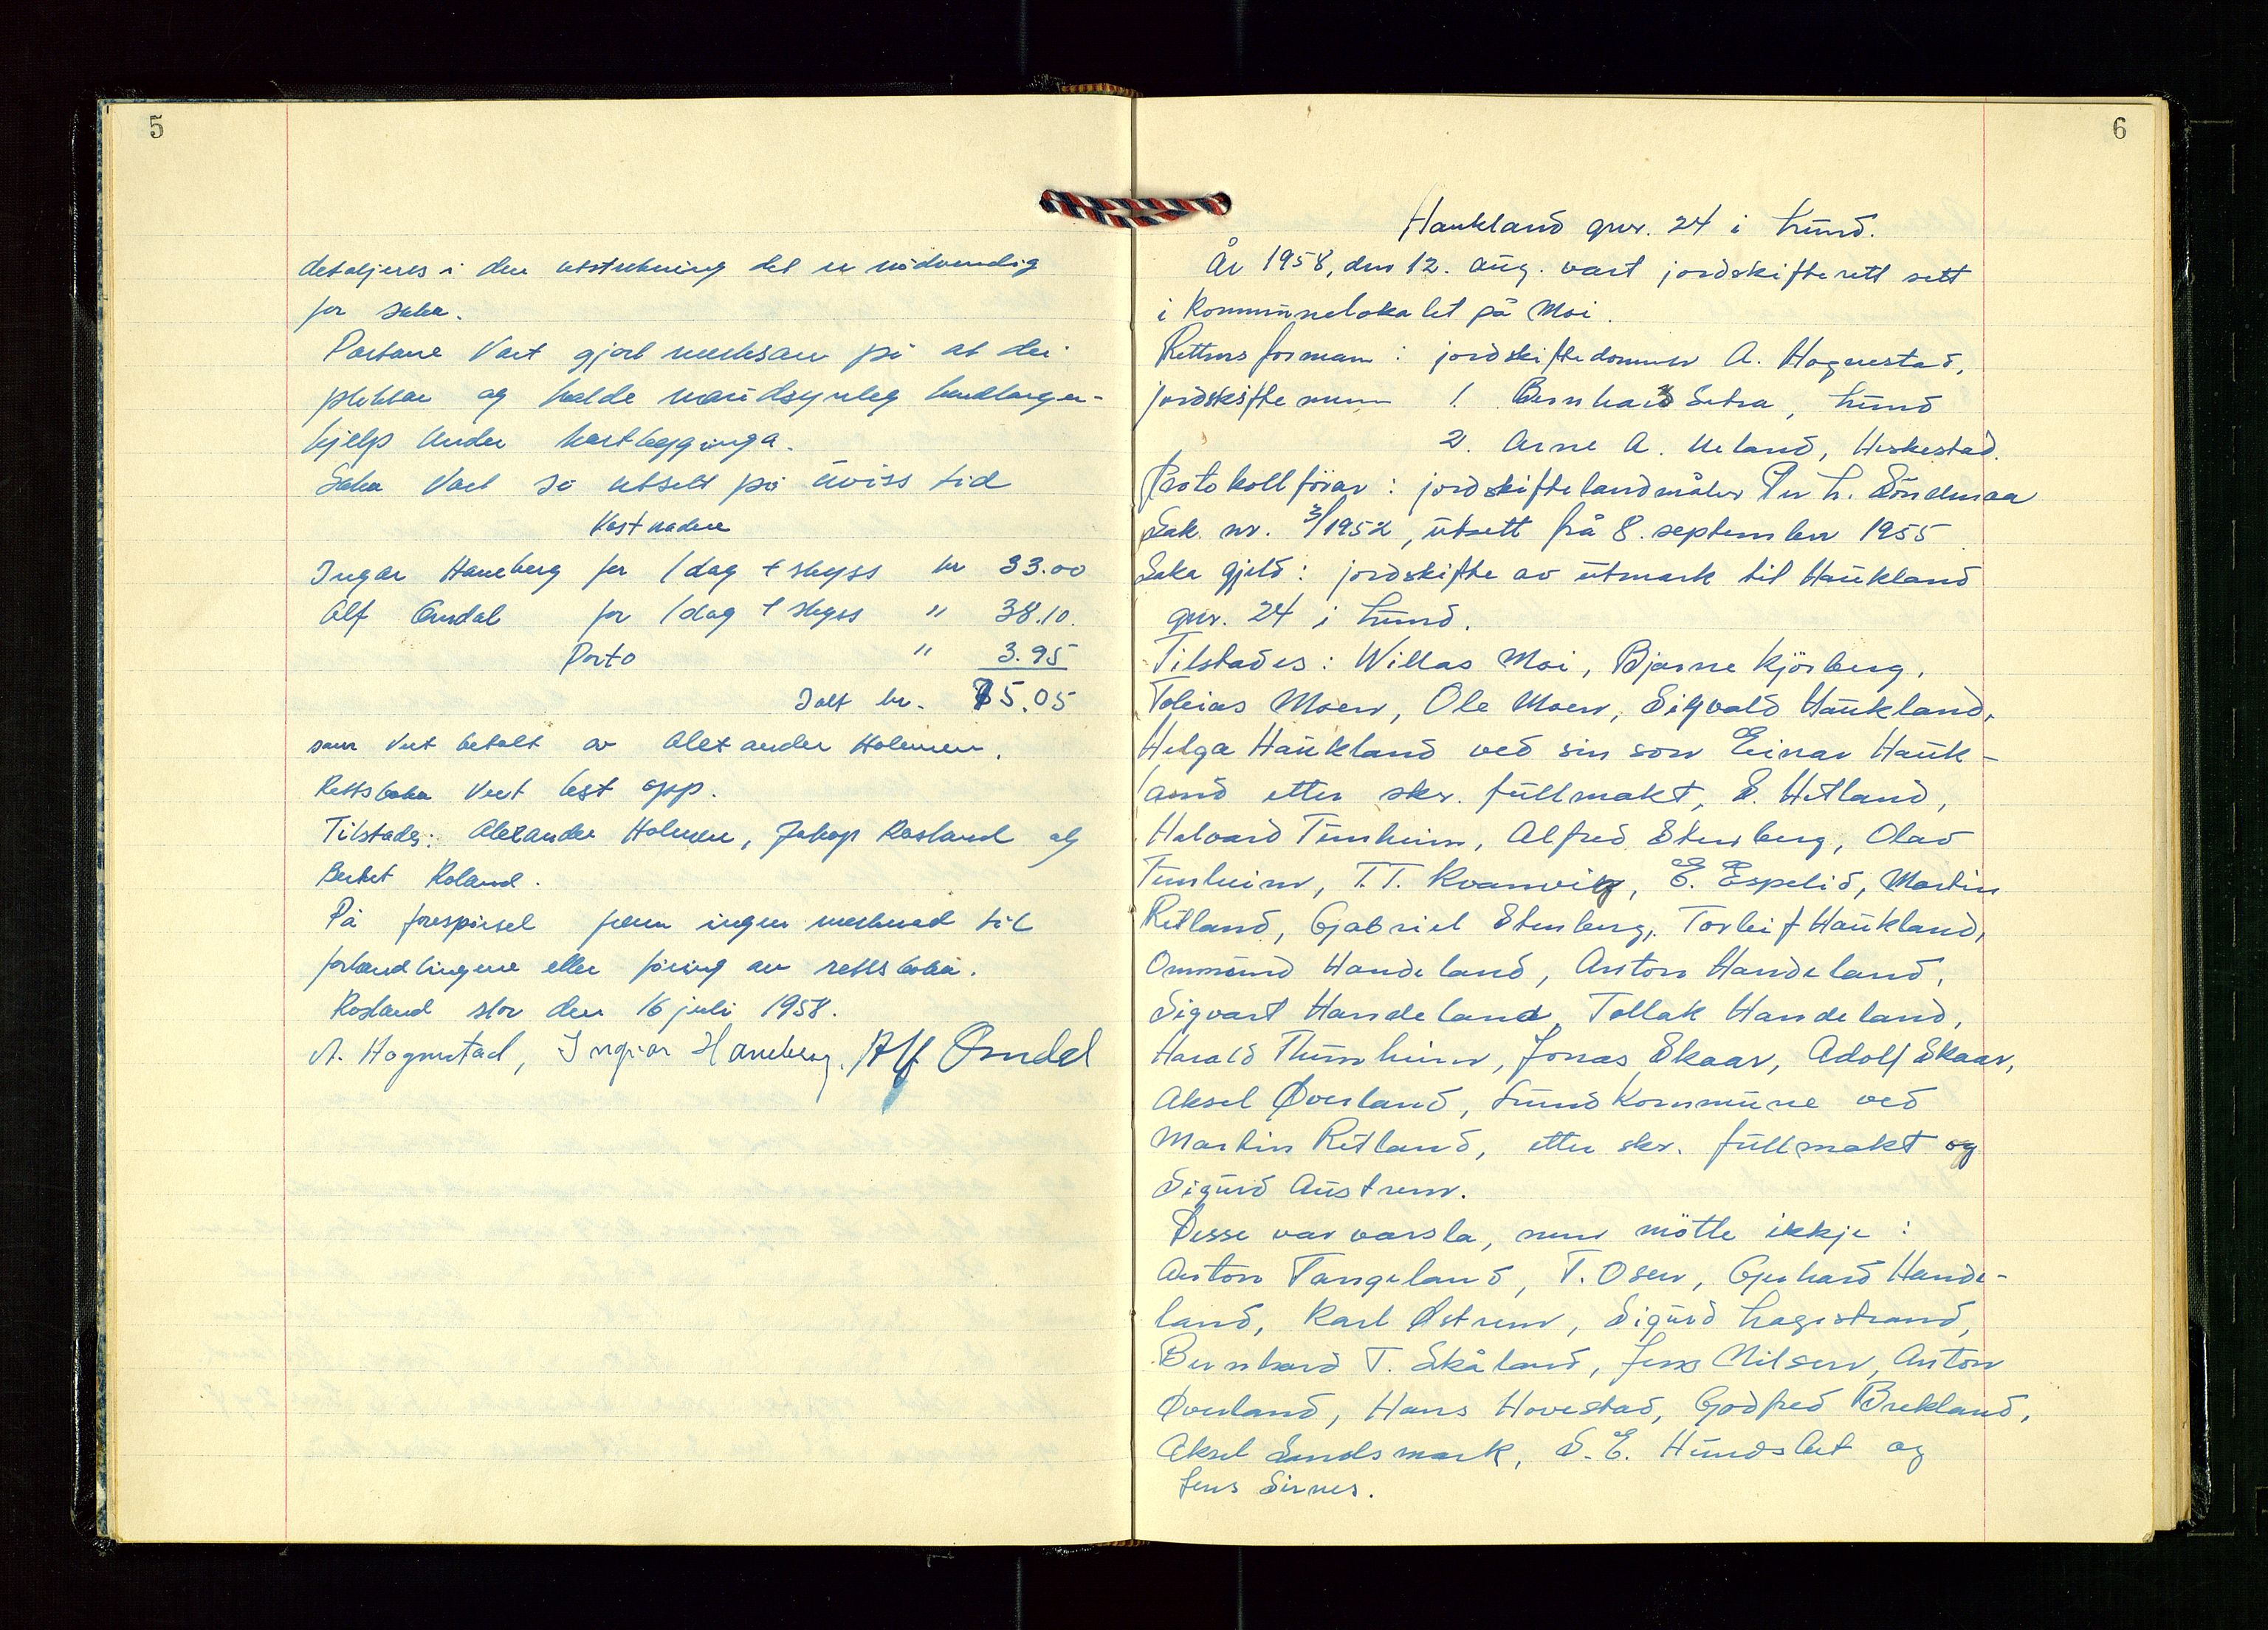 5
detaljeres i den utstrekning det er nödvendig
for saka.
Partane Vart gjort merksam på at dei
pliktar og halde naudsynleg handlangar-
hjelp under kartlegginga.
Saka Vart så utsett på uviss tid
Kostnader
Ingvar Haneberg for 1 dag + skyss kr 33.00
Alf Omdal for 1 dag + skyss " 38.10.
Porto " 3.95
Ialt kr. 75.05
som Vert betalt av Alexander Holmen.
Rettsboka Vert lest opp.
Tilstades: Alexander Holmen, Jakop Rosland og
Roland.
På forespørsel fram ingen merknad til
forhandlingene eller föring av rettsboka.
Rosland den 16 juli 1958.
A. Hognestad, Ingvar Haneberg. Alf Omdal
6
Haukland gnr. 24 i Lund.
År 1958, den 12. aug. vart jordskifterett sett
i kommunelokalet på Moi.
Rettens formann: jordskiftedommer A. Hognestad,
jordskiftemenn 1. Bernhard Setra, Lund
2. Arne A. Ueland, Heskestad.
Protokollförar: jordskiftelandmåler Per L. Söndenaa
Sak nr. 3/1952, utsett frå 8. september 1955
Saka gjeld: jordskifte av utmark til Haukland
gnr. 24 i Lund.
Tilstades: Willas Moi, Bjarne Kjörberg,
Tobias Moen, Ole Moen, Sigvald Haukland,
Helga Haukland ved sin son Einar Hauk-
land etter skr. fullmakt, S. Hetland,
Halvard Tunheim, Alfred Stenberg, Olav
Tunheim, T.T. Kvamvig, E. Espelid, Martin
Retland, Gabriel Stenberg, Torleif Haukland,
Ommund Handeland, Anton Handeland,
Sigvart Handeland, Tollak Handeland,
Harald Thunheim, Jonas Skaar, Adolf Skaar,
Aksel Øverland, Lund kommune ved
Martin Retland, etter skr. fullmakt og
Sigurd Austrem.
Desse var varsla, men mötte ikkje:
Anton Tangeland, T. Osen, Gerhard Hande-
land, Karl Østrem, Sigurd Lagestrand,
Bernhard T. Skåland, Jens Nilsen, Anton
Øverland, Hans Hovestad, Godfred Brekland,
Aksel Sandsmark, S. E. Hundslet og
Jens Sirnes.